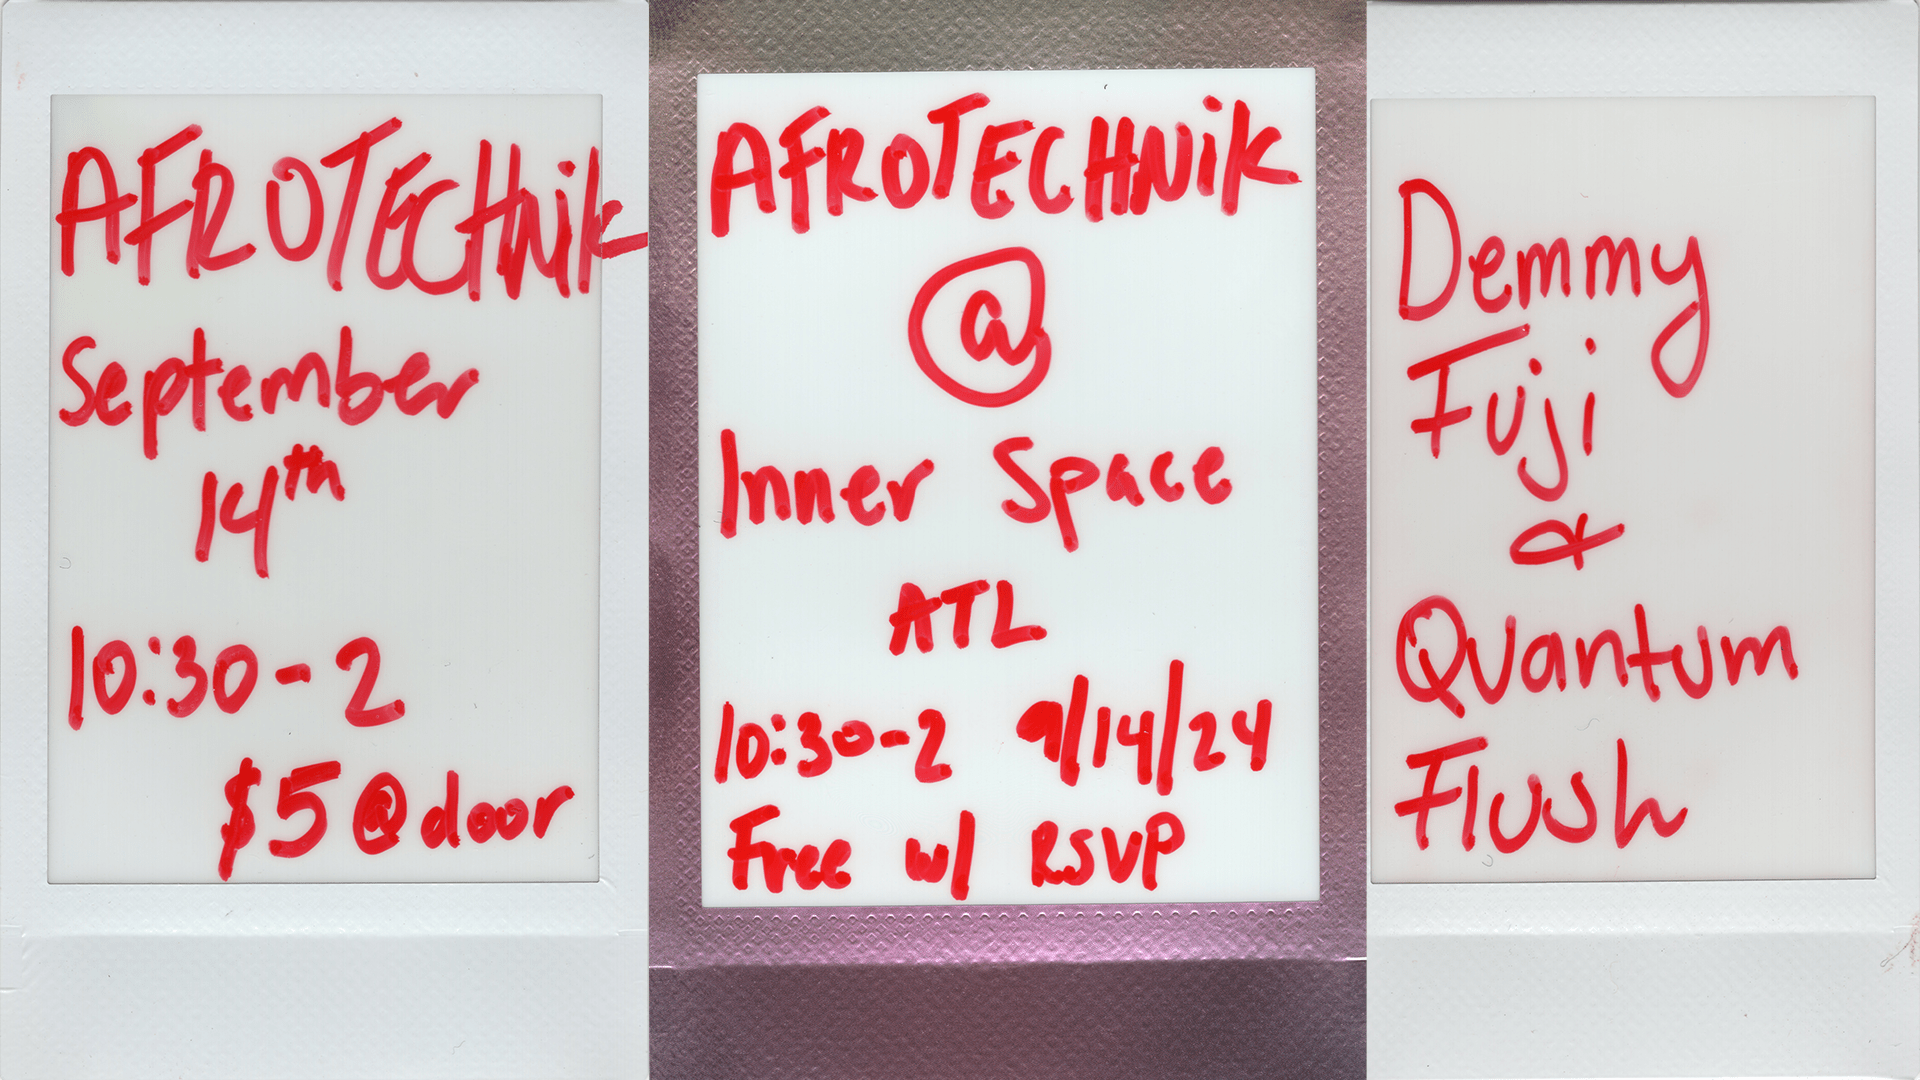 AFROTECHNiK
September
14th
10:30-2
$5 @ door
AFROTECHNiK
@
Inner Space
ATL
10:30-2 9/14/24
Free w/ RSVP
Demmy
Fuji
&
Quantum
Flush